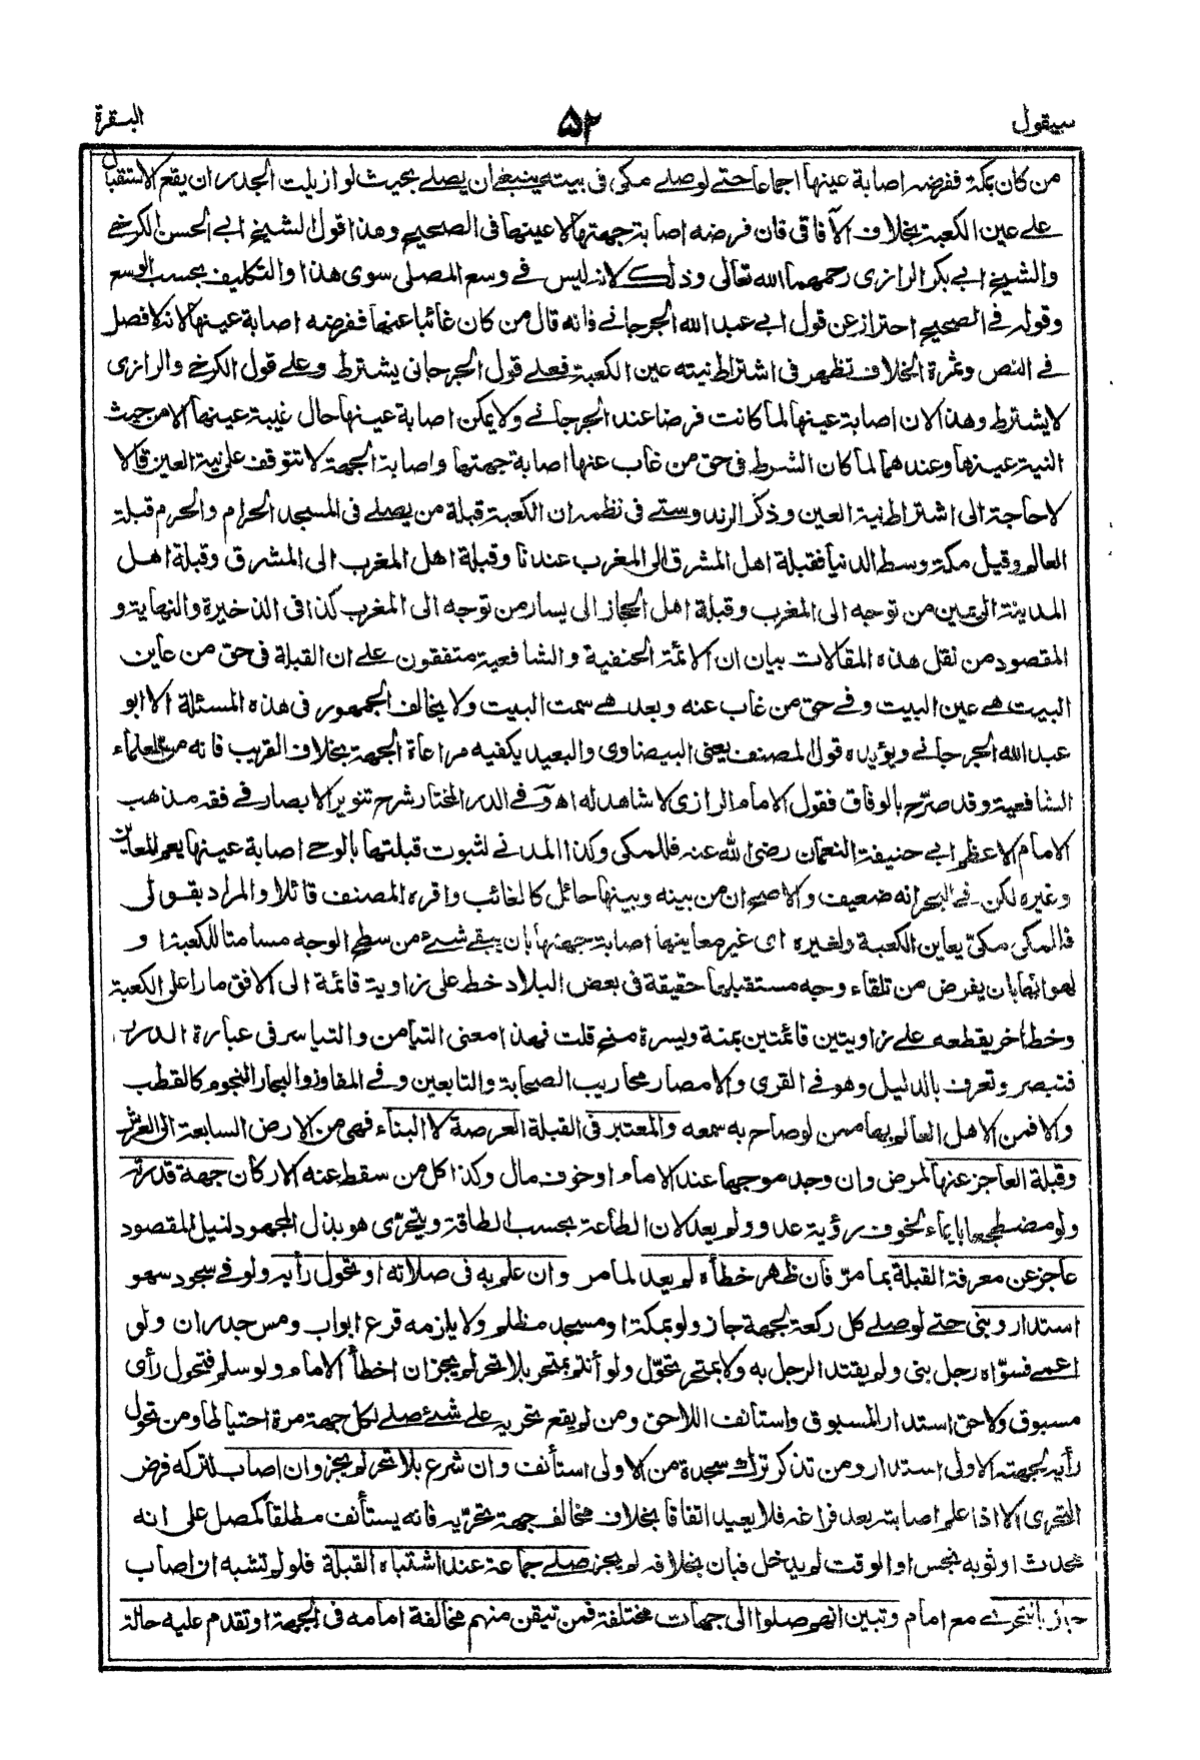 سيقول ۵۲ البقرة
من كان بمكة ففرضه اصابة عينها اجماعا حتے لو صلے مكى فى بيته ينبغے ان يصلے بحيث لو ازيلت الجدران يقع الاستقبال
علے عين الكعبة بخلاف الآفاقى فان فرضه اصابة جهتها لا عينها فى الصحيح وهذا قول الشيخ ابى الحسن الكرخے
والشيخ ابى بكر الرازى رحمهما الله تعالى وذلك لانه ليس فے وسع المصلى سوى هذا والتكليف بحسب الوسع
وقوله فے الصحيح احتراز عن قول ابى عبد الله الجرجانے فانه قال من كان غائبا عنها ففرضه اصابة عينها لانه لا فصل
فے النص وثمرة الخلاف تظهر فى اشتراط نيته عين الكعبة فعلے قول الجرجانى يشترط وعلے قول الكرخى والرازى
لا يشترط وهذا لان اصابة عينها لما كانت فرضا عند الجرجانے ولا يمكن اصابة عينها حال غيبة عينها الا من حيث
النية عينها وعندهما لما كان الشرط فى حق من غاب عنها اصابة جهتها واصابة الجهة لا تتوقف على نية العين قالا
لا حاجة الى اشتراط نية العين وذكر الزندوستے فى نظمه ان الكعبة قبلة من يصلے فى المسجد الحرام والحرم قبلة
العالم وقيل مكة وسط الدنيا فقبلة اهل المشرق الى المغرب عندنا وقبلة اهل المغرب الى المشرق وقبلة اهل
المدينة الى يمين من توجه الى المغرب وقبلة اهل الحجاز الى يسار من توجه الى المغرب كذا فى الذخيرة والنهاية و
المقصود من نقل هذه المقالات بيان ان الائمة الحنفية والشافعية متفقون علے ان القبلة فى حق من عاين
البيت هے عين البيت وفے حق من غاب عنه وبعد هے سمت البيت ولا يخالف الجمهور فى هذه المسئلة الا ابو
عبد الله الجرجانے ويؤيده قول المصنف يعنى البيضاوى والبعيد يكفيه مراعاة الجهة بخلاف القريب فانه من علماء
الشافعية وقد صرّح بالوفاق فقول الامام الرازى لا شاهد له اھ وفے الدر المختار شرح تنوير الابصار فے فقه مذهب
الامام الاعظم ابى حنيفة النعمان رضى الله عنه فللمكى وكذا المدنے لثبوت قبلتها بالوحے اصابة عينها يعم المعاين
وغيره لكن فے البحر انه ضعيف والاصح ان من بينه وبينها حائل كالغائب واقره المصنف قائلا والمراد بقولى
فللمكى مكىّ يعاين الكعبة ولغيره اى غير معاينها اصابة جهتها بان يبقے شئ من سطح الوجه مسامتا للكعبة او
لهوائها بان يفرض من تلقاء وجه مستقبلها حقيقة فى بعض البلاد خط على زاوية قائمة الى الافق مارا على الكعبة
وخط اخر يقطعه علے زاويتين قائمتين يمنة ويسرة منح قلت فهذا معنى التيامن والتياسر فى عبارة الدرر
فتبصر وتعرف بالدليل وهو فے القرى والامصار محاريب الصحابة والتابعين وفے المفاوز والبحار النجوم كالقطب
والا فمن الاهل العالم بها ممن لو صاح به سمعه والمعتبر فى القبلة العرصة لا البناء فهى من الارض السابعة الى العرش
وقبلة العاجز عنها لمرض وان وجد موجها عند الامام او خوف مال وكذا كل من سقط عنه الاركان جهة قدرته
ولو مضطجعا بايماء لخوف رؤية عدو ولم يعد لان الطاعة بحسب الطاقة ويتحرّى هو بذل المجهود لنيل المقصود
عاجز عن معرفة القبلة بما مرّ فان ظهر خطأه لم يعد لما مر وان علم به فى صلاته او تحول رأيه ولو فے سجود سهو
استدار وبنى حتے لو صلے كل ركعة لجهة جاز ولو بمكة او مسجد مظلم ولا يلزمه قرع ابواب ومس جدران ولو
اعمے فسوّاه رجل بنى ولم يقتد الرجل به ولا بمتحر تحوّل ولو أئتم بمتحر بلا تحر لم يجز ان اخطأ الامام ولو سلم فتحول رأى
مسبوق ولاحق استدار المسبوق واستانف اللاحق ومن لم يقع تحريه علے شئ صلے لكل جهة مرة احتياطا ومن تحول
رأيه لجهته الاولى استدار ومن تذكر ترك سجدة من الاولى استأنف وان شرع بلا تحر لم يجز وان اصاب لتركه فرض
التحرى الا اذا علم اصابته بعد فراغه فلا يعيد اتفاقا بخلاف مخالف جهة تحرّيه فانه يستأنف مطلقا كمصل على انه
محدث او ثوبه نجس او الوقت لم يدخل فبان بخلافه لم يجز صلے جماعة عند اشتباه القبلة فلو لم تشبه ان اصاب
جاز بالتحرے مع امام وتبين انهم صلوا الى جهات مختلفة فمن تيقن منهم مخالفة امامه فى الجهة او تقدم عليه حالة